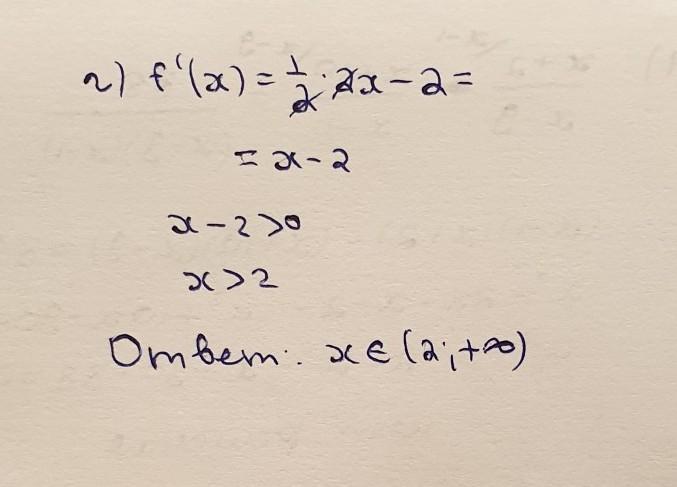 г) f'(x) = 1/2 · 2x - 2 =
= x - 2
x - 2 > 0
x > 2
Ответ: x ∈ (2; +∞)